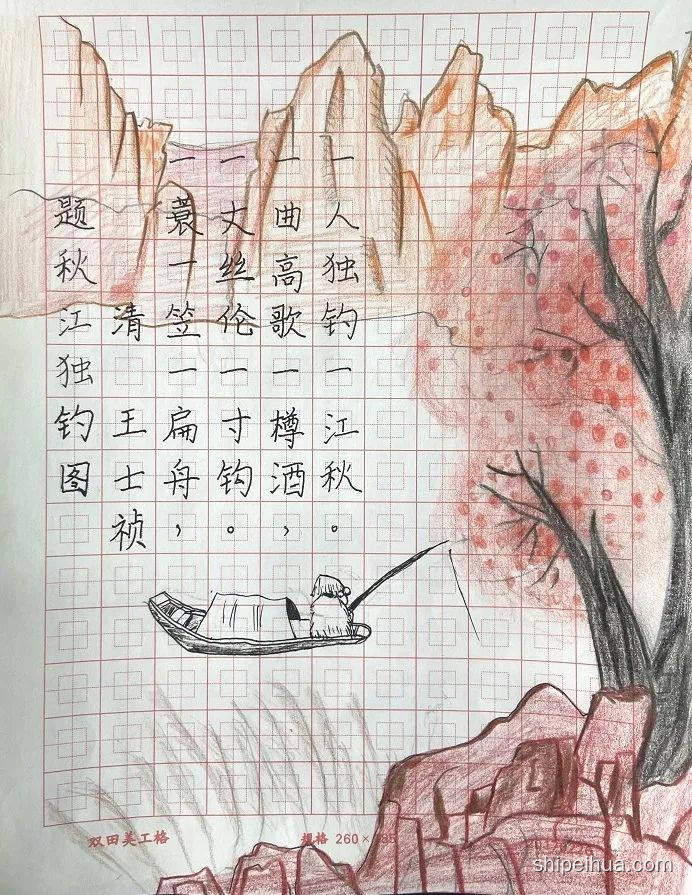 题秋江独钓图
清 王士祯
一蓑一笠一扁舟，
一丈丝伦一寸钩。
一曲高歌一樽酒，
一人独钓一江秋。
双田美工格
规格 260×
shipeihua.com